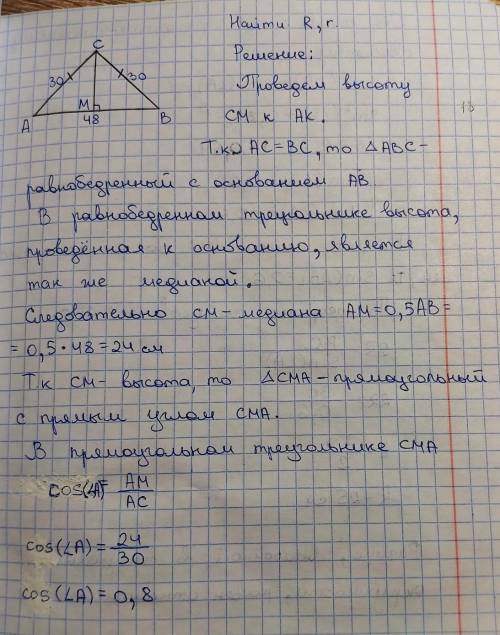 Найти R, r.
C
Решение:
30 30
Проведем высоту
M
СМ к АК.
13
A 48 B
Т.к. АС=ВС, то △АВС –
равнобедренный с основанием АВ.
В равнобедренном треугольнике высота,
проведённая к основанию, является
так же медианой.
Следовательно СМ – медиана АМ=0,5АВ=
= 0,5 · 48 = 24 см
Т.к СМ – высота, то △СМА – прямоугольный
с прямым углом СМА.
В прямоугольном треугольнике СМА
cos(∠A)= AM/AC
cos(∠A) = 24/30
cos(∠A) = 0,8